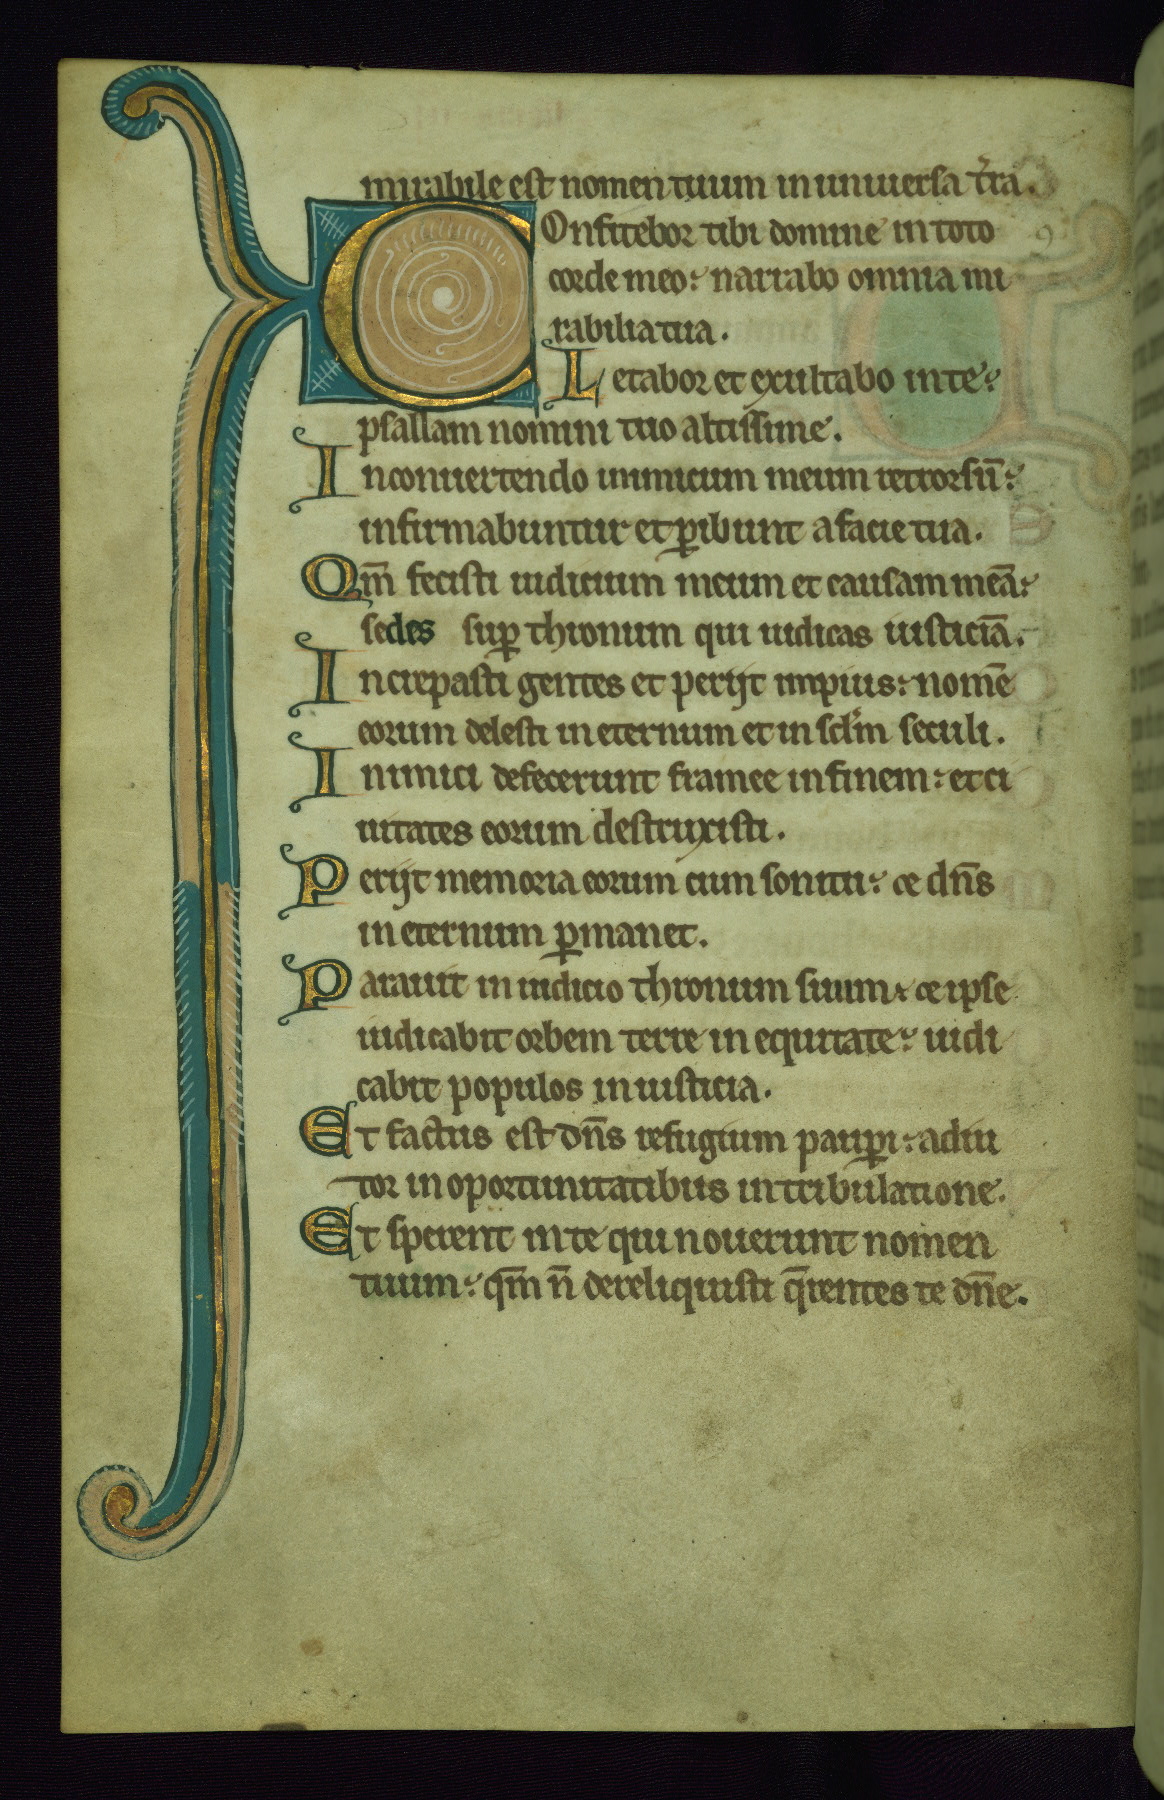 mirabile est nomen tuum in uniuersa t̄ra.
COnfitebor tibi domine in toto
corde meo: narrabo omnia mi
rabilia tua.
Letabor et exultabo in te:
psallam nomini tuo altissime.
Inconuertendo inimicum meum retrorsū:
infirmabuntur et ꝑibunt a facie tua.
Qm̄ fecisti iudicium meum et causam meā:
sedes suꝑ thronum qui iudicas iusticiā.
Increpasti gentes et perijt impius: nomē
eorum delesti in eternum et in scl̄m seculi.
Inimici defecerunt framee in finem: et ci
uitates eorum destruxisti.
Perijt memoria eorum cum sonitu: et dn̄s
in eternum ꝑmanet.
Parauit in iudicio thronum suum: et ipse
iudicabit orbem terre in equitate: iudi
cabit populos in iusticia.
Et factus est dn̄s refugium pauꝑi: adiu
tor in oportunitatibus in tribulatione.
Et sperent in te qui nouerunt nomen
tuum: qm̄ n̄ dereliquisti q̄rentes te dn̄e.